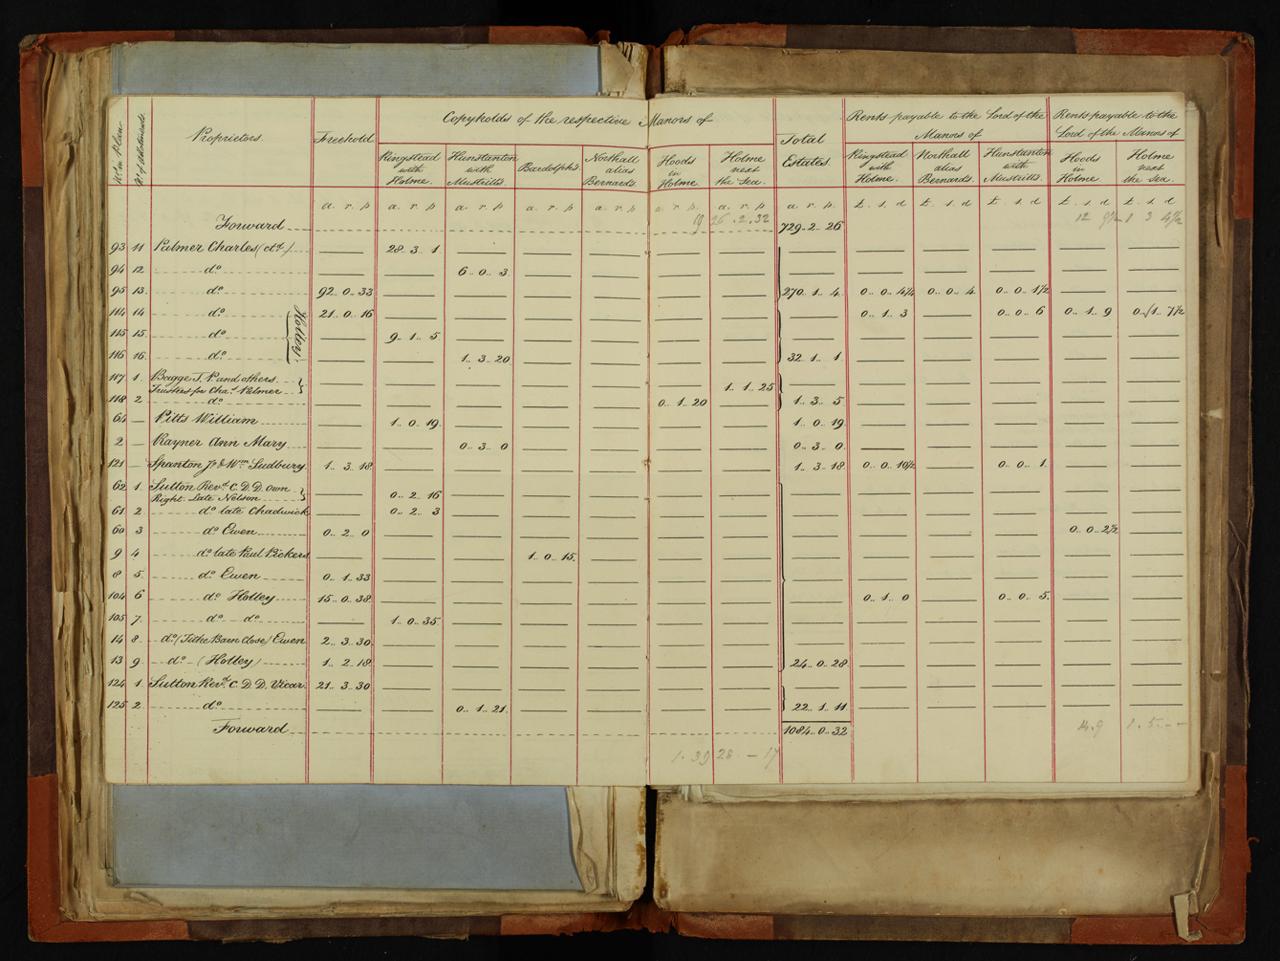 No. on Plan
No. of Allotments
Proprietors
Freehold
Copyholds of the respective Manors of
Kingstead with Holme.
Hunstanton with Mustritts.
Bardolphs.
Northall alias Bernards.
Hoods in Holme
Holme next the Sea.
Total Estates.
Rents payable to the Lord of the Manors of
Kingstead with Holme.
Northall alias Bernards.
Hunstanton with Mustritts.
Rents payable to the Lord of the Manors of
Hoods in Holme
Holme next the Sea.
a. r. p a. r. p a. r. p a. r. p a. r. p a. r. p a. r. p a. r. p £. s. d £. s. d £. s. d £. s. d £. s. d
Forward 19 26.2.32 729..2..26 12 9½ 1 3 4½
93 11 Palmer Charles (ctd.) 28..3..1
94 12 do 6..0..3
95 13. do 92..0..33 270..1..4. 0..0..4¼ 0..0..4. 0..0..1½
114 14 do 21..0..16 0..1..3 0..0..6 0..1..9 0../1..7½
Holley
115 15. do 9..1..5
116 16. do 1..3..20 32..1..1
117 1. Bagge T. P. and others 1..1..25
Trustees for Chas. Palmer
118 2 do 0..1..20 1..3..5
64 — Pitts William 1..0..19 1..0..19
2 — Rayner Ann Mary 0..3..0 0..3..0
121 — Spanton Jas & Wm Sudbury 1..3..18 1..3..18 0..0..10½ 0..0..1.
62 1. Sutton Revd. C. D. D. Own
Right. Late Nelson 0..2..16
61 2 do late Chadwick 0..2..3
60 3 do Ewen 0..2..0 0..0..2½
9 4 do late Paul Bickers 1..0..15.
8 5. do Ewen 0..1..33
104 6 do Holley 15..0..38 0..1..0 0..0..5.
105 7. do do 1..0..35
14 8. do (Tithe Barn Close) Ewen 2..3..30
13 9 do (Holley) 1..2..18 24..0..28
124 1. Sutton Revd. C. D. D. Vicar. 21..3..30
125 2 do 0..1..21. 22..1..11
Forward 1084..0..32 14.9 1.5.--
1.39 28 – 17